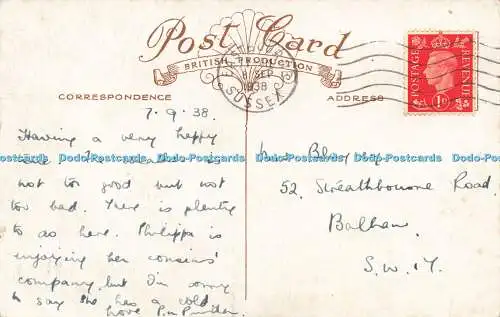 Post Card
BRITISH PRODUCTION
8 SEP
1938
SUSSEX
POSTAGE
REVENUE
1D
CORRESPONDENCE
ADDRESS
7.9.38.
Having a very happy
time. The weather is
not too good but not
too bad. There is plenty
to do here. Philippa is
enjoying her cousins'
company but I'm sorry
to say she has a cold
Love
Mrs
52, Streathbourne Road,
Balham,
S.W.17.
Dodo-Postcards Dodo-Postcards Dodo-Postcards Dodo-Postcards Dodo-Postcards Dodo-Postcards